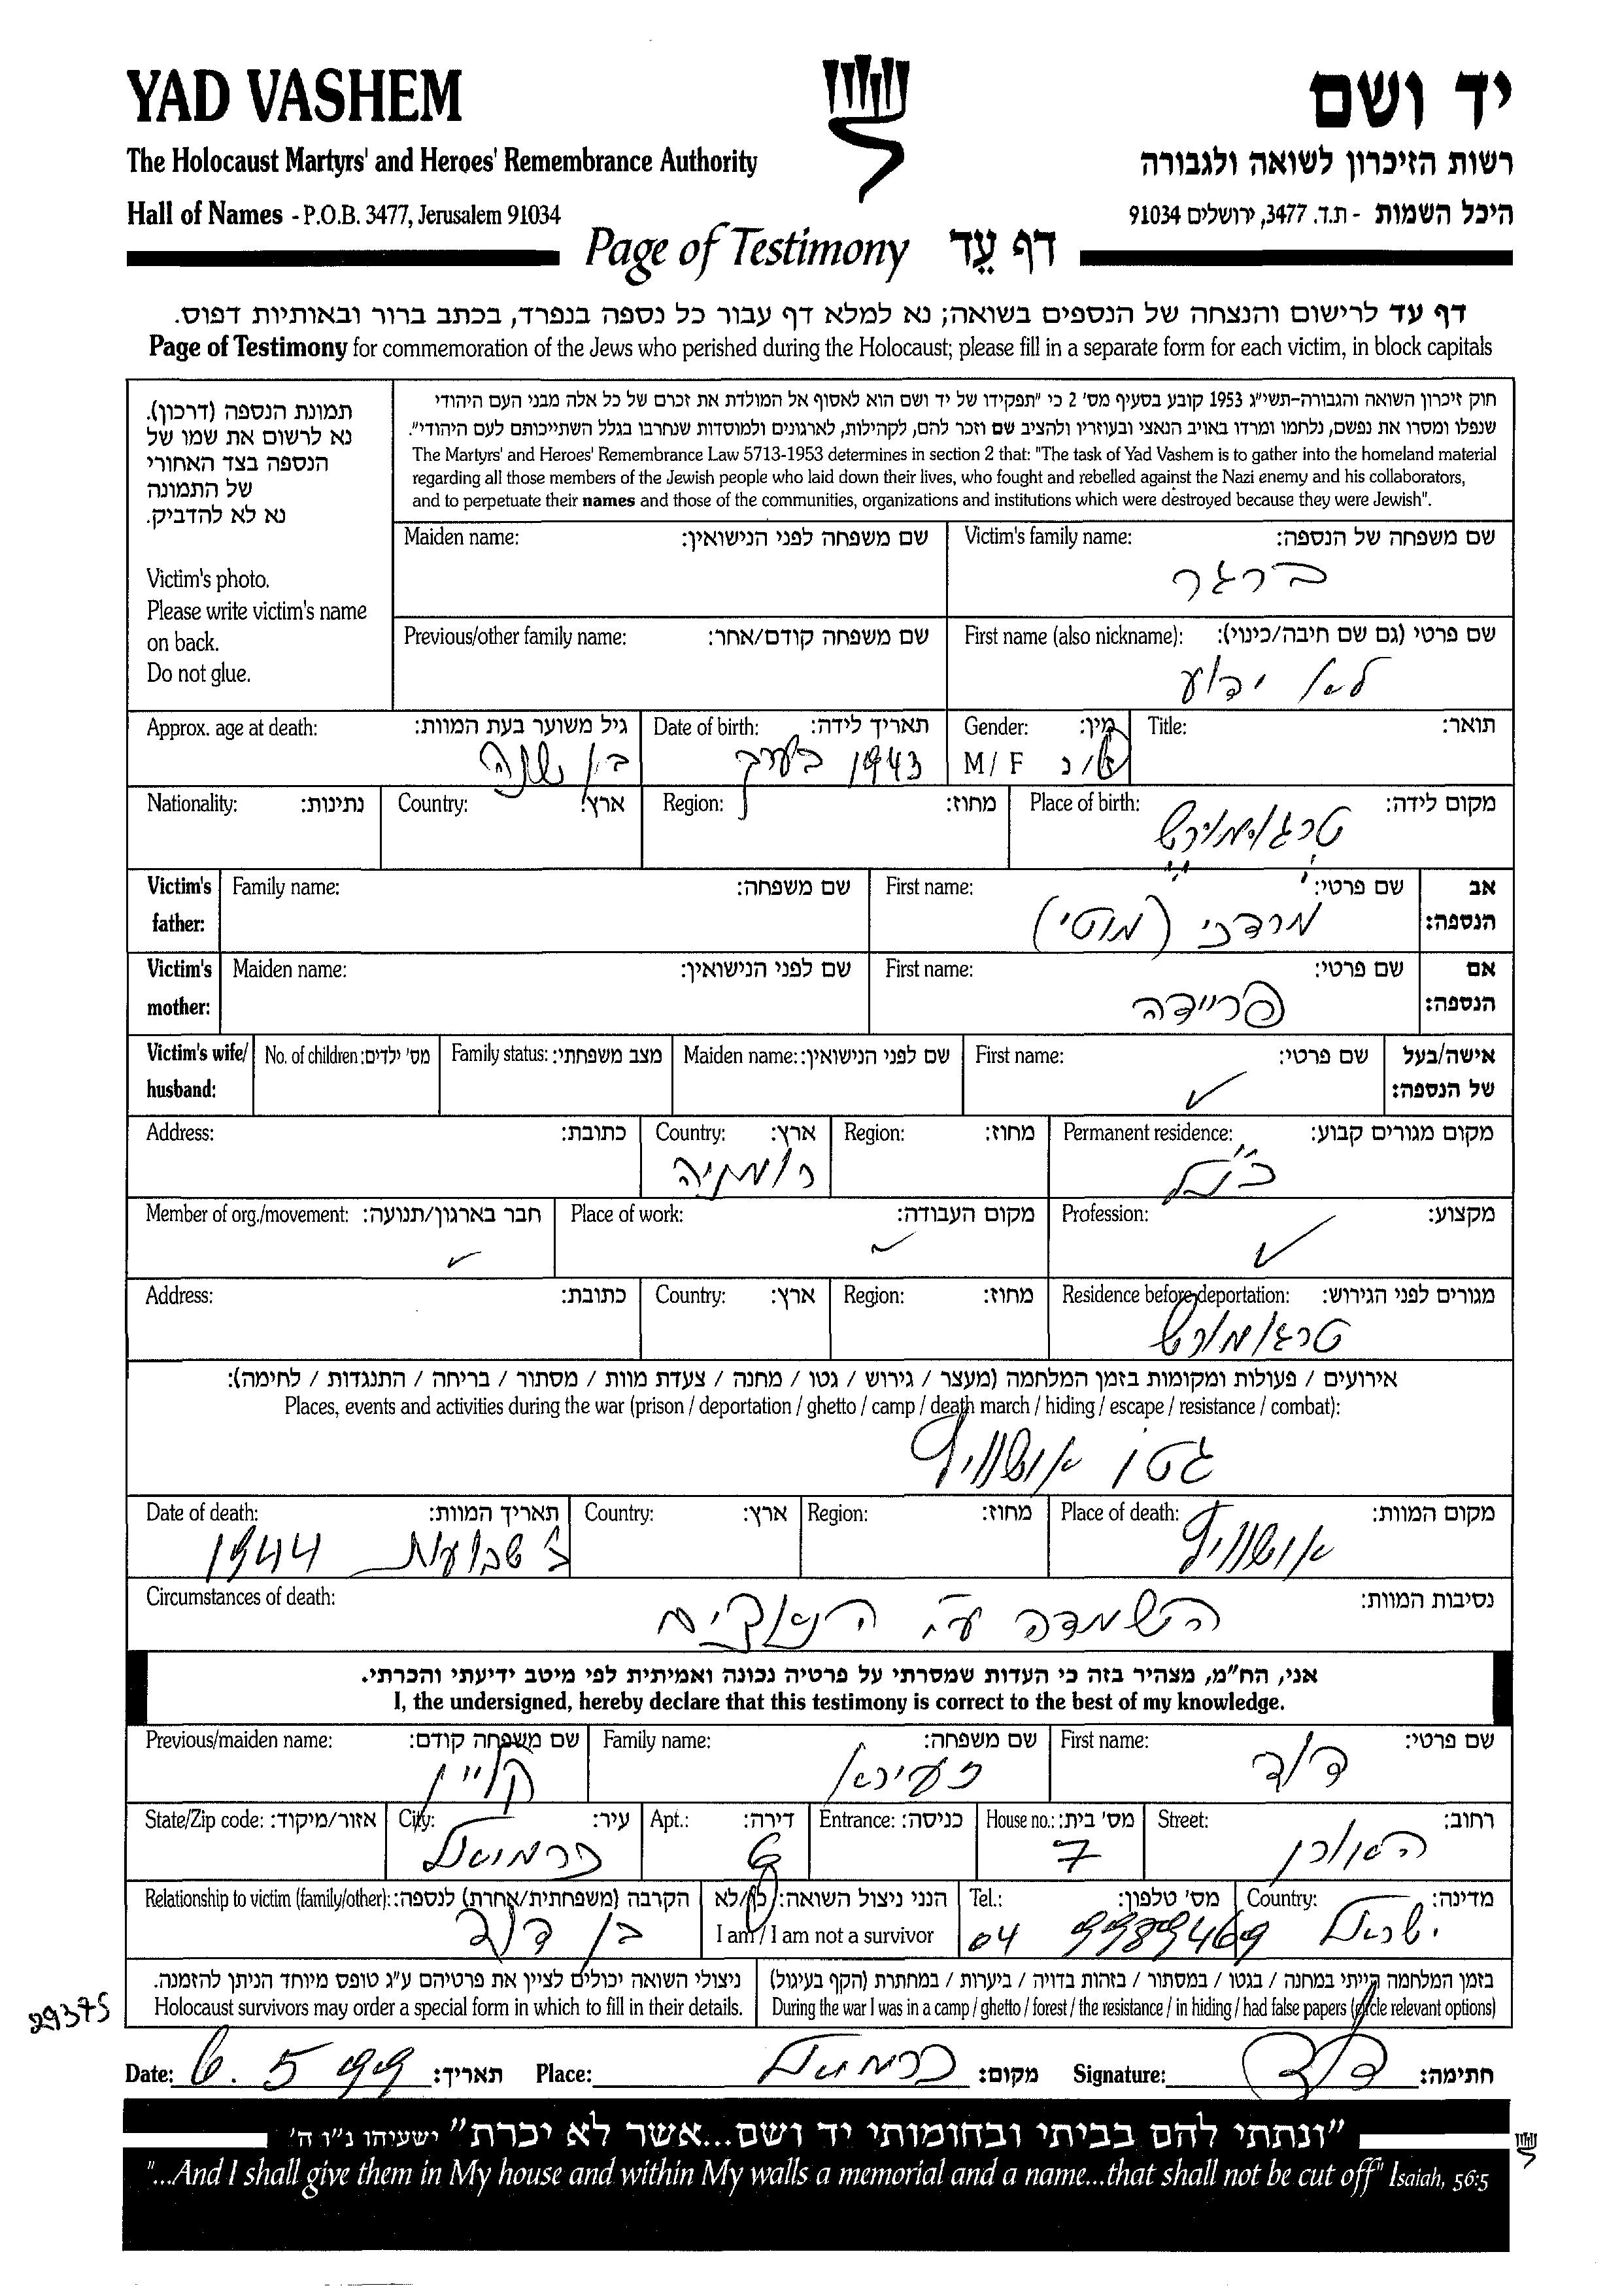 YAD VASHEM
יד ושם
The Holocaust Martyrs' and Heroes' Remembrance Authority
רשות הזיכרון לשואה ולגבורה
Hall of Names - P.O.B. 3477, Jerusalem 91034
היכל השמות - ת.ד. 3477, ירושלים 91034
Page of Testimony דף עֵד
דף עד לרישום והנצחה של הנספים בשואה; נא למלא דף עבור כל נספה בנפרד, בכתב ברור ובאותיות דפוס.
Page of Testimony for commemoration of the Jews who perished during the Holocaust; please fill in a separate form for each victim, in block capitals
תמונת הנספה (דרכון).
נא לרשום את שמו של
הנספה בצד האחורי
של התמונה
נא לא להדביק.
Victim's photo.
Please write victim's name
on back.
Do not glue.
חוק זיכרון השואה והגבורה-תשי"ג 1953 קובע בסעיף מס' 2 כי "תפקידו של יד ושם הוא לאסוף אל המולדת את זכרם של כל אלה מבני העם היהודי
שנפלו ומסרו את נפשם, נלחמו ומרדו באויב הנאצי ובעוזריו ולהציב שם וזכר להם, לקהילות, לארגונים ולמוסדות שנחרבו בגלל השתייכותם לעם היהודי".
The Martyrs' and Heroes' Remembrance Law 5713-1953 determines in section 2 that: "The task of Yad Vashem is to gather into the homeland material
regarding all those members of the Jewish people who laid down their lives, who fought and rebelled against the Nazi enemy and his collaborators,
and to perpetuate their names and those of the communities, organizations and institutions which were destroyed because they were Jewish".
Victim's family name: שם משפחה של הנספה:
ברגר
Maiden name: שם משפחה לפני הנישואין:
First name (also nickname): שם פרטי (גם שם חיבה/כינוי):
לא ידוע
Previous/other family name: שם משפחה קודם/אחר:
Title: תואר:
Gender: מין:
M / F ז/נ
Date of birth: תאריך לידה:
1943 בערך
Approx. age at death: גיל משוער בעת המוות:
בן שנה
Place of birth: מקום לידה:
טרגו מורש
Region: מחוז:
Country: ארץ:
Nationality: נתינות:
Victim's father: אב הנספה:
First name: שם פרטי:
מרדכי (מוטי)
Family name: שם משפחה:
Victim's mother: אם הנספה:
First name: שם פרטי:
פריידה
Maiden name: שם לפני הנישואין:
Victim's wife/ husband: אישה/בעל של הנספה:
First name: שם פרטי:
Maiden name: שם לפני הנישואין:
Family status: מצב משפחתי:
No. of children: מס' ילדים:
Permanent residence: מקום מגורים קבוע:
כנ"ל
Region: מחוז:
Country: ארץ:
רומניה
Address: כתובת:
Profession: מקצוע:
Place of work: מקום העבודה:
Member of org./movement: חבר בארגון/תנועה:
Residence before deportation: מגורים לפני הגירוש:
טרגו מורש
Region: מחוז:
Country: ארץ:
Address: כתובת:
אירועים / פעולות ומקומות בזמן המלחמה (מעצר / גירוש / גטו / מחנה / צעדת מוות / מסתור / בריחה / התנגדות / לחימה):
Places, events and activities during the war (prison / deportation / ghetto / camp / death march / hiding / escape / resistance / combat):
גטו אושוויץ
Place of death: מקום המוות:
אושוויץ
Region: מחוז:
Country: ארץ:
Date of death: תאריך המוות:
שבועות 1944
Circumstances of death: נסיבות המוות:
השמדה ע"י הנאצים
אני, הח"מ, מצהיר בזה כי העדות שמסרתי על פרטיה נכונה ואמיתית לפי מיטב ידיעתי והכרתי.
I, the undersigned, hereby declare that this testimony is correct to the best of my knowledge.
First name: שם פרטי:
דוד
Family name: שם משפחה:
זעירא
Previous/maiden name: שם משפחה קודם:
קליין
Street: רחוב:
האורן
House no.: מס' בית:
7
Entrance: כניסה:
Apt.: דירה:
6
City: עיר:
כרמיאל
State/Zip code: אזור/מיקוד:
Country: מדינה:
ישראל
Tel.: מס' טלפון:
04 9989469
הנני ניצול השואה: כן/לא
I am / I am not a survivor
Relationship to victim (family/other): הקרבה (משפחתית/אחרת) לנספה:
בן דוד
בזמן המלחמה הייתי במחנה / בגטו / במסתור / בזהות בדויה / ביערות / במחתרת (הקף בעיגול)
During the war I was in a camp / ghetto / forest / the resistance / in hiding / had false papers (circle relevant options)
ניצולי השואה יכולים לציין את פרטיהם ע"ג טופס מיוחד הניתן להזמנה.
Holocaust survivors may order a special form in which to fill in their details.
29375
Date: 6. 5 99 תאריך:
Place: כרמיאל מקום:
Signature: דוד חתימה:
"ונתתי להם בביתי ובחומותי יד ושם...אשר לא יכרת" ישעיהו נ"ו ה'
"...And I shall give them in My house and within My walls a memorial and a name...that shall not be cut off" Isaiah, 56:5